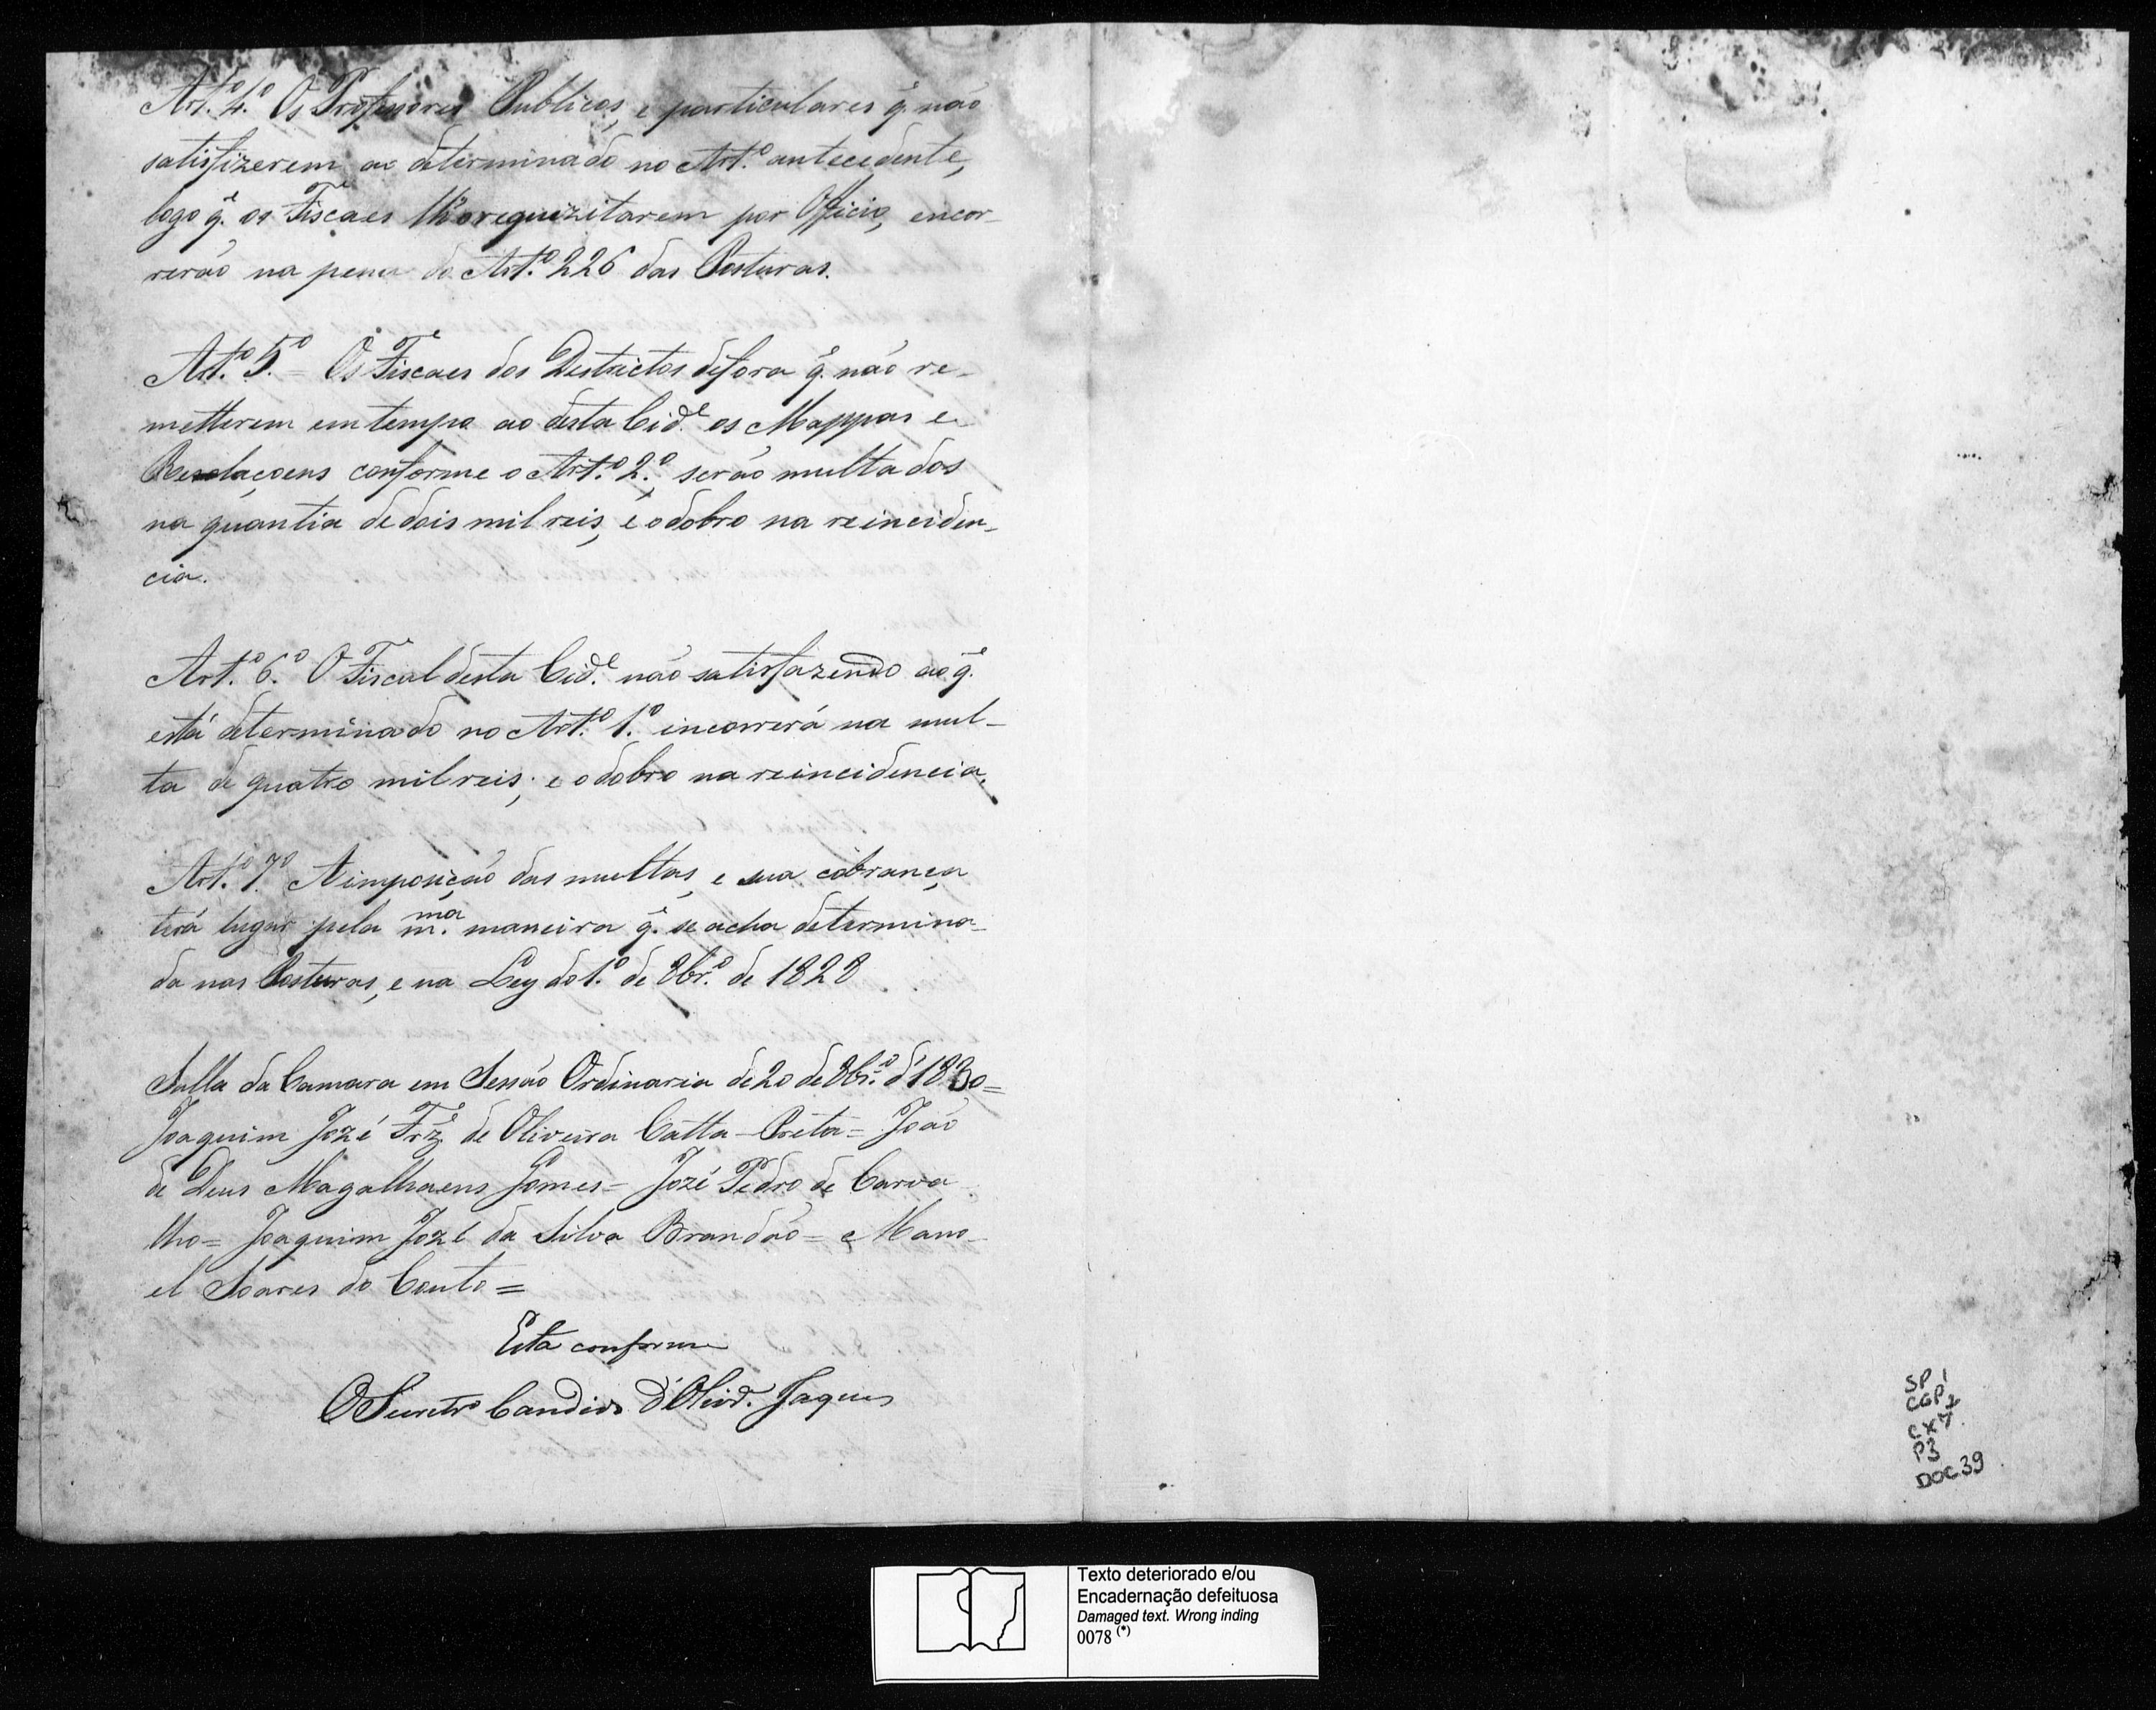 Art.º 4.º Os Professores Publicos, e particulares q.e não
satisfizerem ao determinado no Art.º antecedente,
logo q.e os Fiscaes lho requizitarem por Officio, encor-
rerão na pena do Art.º 226 das Posturas.
Art.º 5.º = Os Fiscaes dos Destrictos defora q.e não re-
metterem em tempo ao desta Cid.e os Mappas e
Rellaçoens conforme o Art.º 2.º, serão multados
na quantia de dois mil reis, e o dobro na reinciden-
cia.
Art.º 6.º O Fiscal desta Cid.e não satisfazendo ao q.e
está determinado no Art.º 1.º incorrerá na mul-
ta de quatro mil reis; e o dobro na reincidencia.
Art.º 7.º A impozição das multas, e sua cobrança
terá lugar pela m.ma maneira q.e se acha determina-
da nas Posturas, e na Ley do 1.º de 8br.º de 1828
Salla da Camara em Sessão Ordinaria de 20 de 8br.º d'1830=
Joaquim Jozé Frz' de Oliveira Catta-Preta= João
de Deus Magalhaens Gomes= Jozé Pedro de Carva
lho= Joaquim Jozé da Silva Brandão= e Mano-
el Soares do Couto=
Esta conforme
O Secretr.º Candido d'Olivr.ª Jaques
SP
CGP 1
CX 7
P3
DOC.39
Texto deteriorado e/ou
Encadernação defeituosa
Damaged text. Wrong inding
0078 (*)